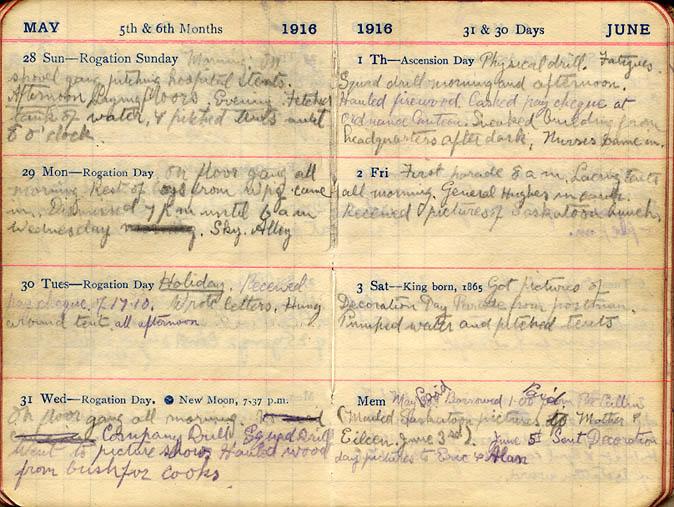 MAY 5th & 6th Months 1916
28 Sun—Rogation Sunday Morning. On
shovel gang, pitching hospital tents.
Afternoon Laying floors Evening Fetched
tank of water, & pitched tents until
8 o'clock.
29 Mon—Rogation Day On floor gang all
morning. Rest of boys from Wpg came
in. Dismissed 7 p.m until 6 a m
Wednesday. Sky. Alley
30 Tues—Rogation Day Holiday. Received
pay cheque of 17.10. Wrote letters. Hung
around tent all afternoon
31 Wed—Rogation Day. New Moon, 7.37 p.m.
On floor gang all morning.
Company Drill, Squad Drill
Went to picture show, Hauled wood
from bush for cooks.
1916 31 & 30 Days JUNE
1 Th—Ascension Day Physical drill. Fatigues.
Squad drill morning and afternoon.
Hauled firewood. Cashed pay cheque at
Ordnance Canteen. Sneaked bunding from
headquarters after dark, Nurses came in.
2 Fri First parade 6 a m. Lacing tents
all morning. General Hughes in camp.
Received pictures of Saskatoon bunch.
3 Sat—King born, 1865 Got pictures of
Decoration Day Parade from postman.
Pumped water and pitched tents
Mem May Borrowed 1.00 from Pte
(Mailed Saskatoon pictures to Mother &
Eileen, June 3rd). June 5th Sent Decoration
day pictures to Eric & Alan